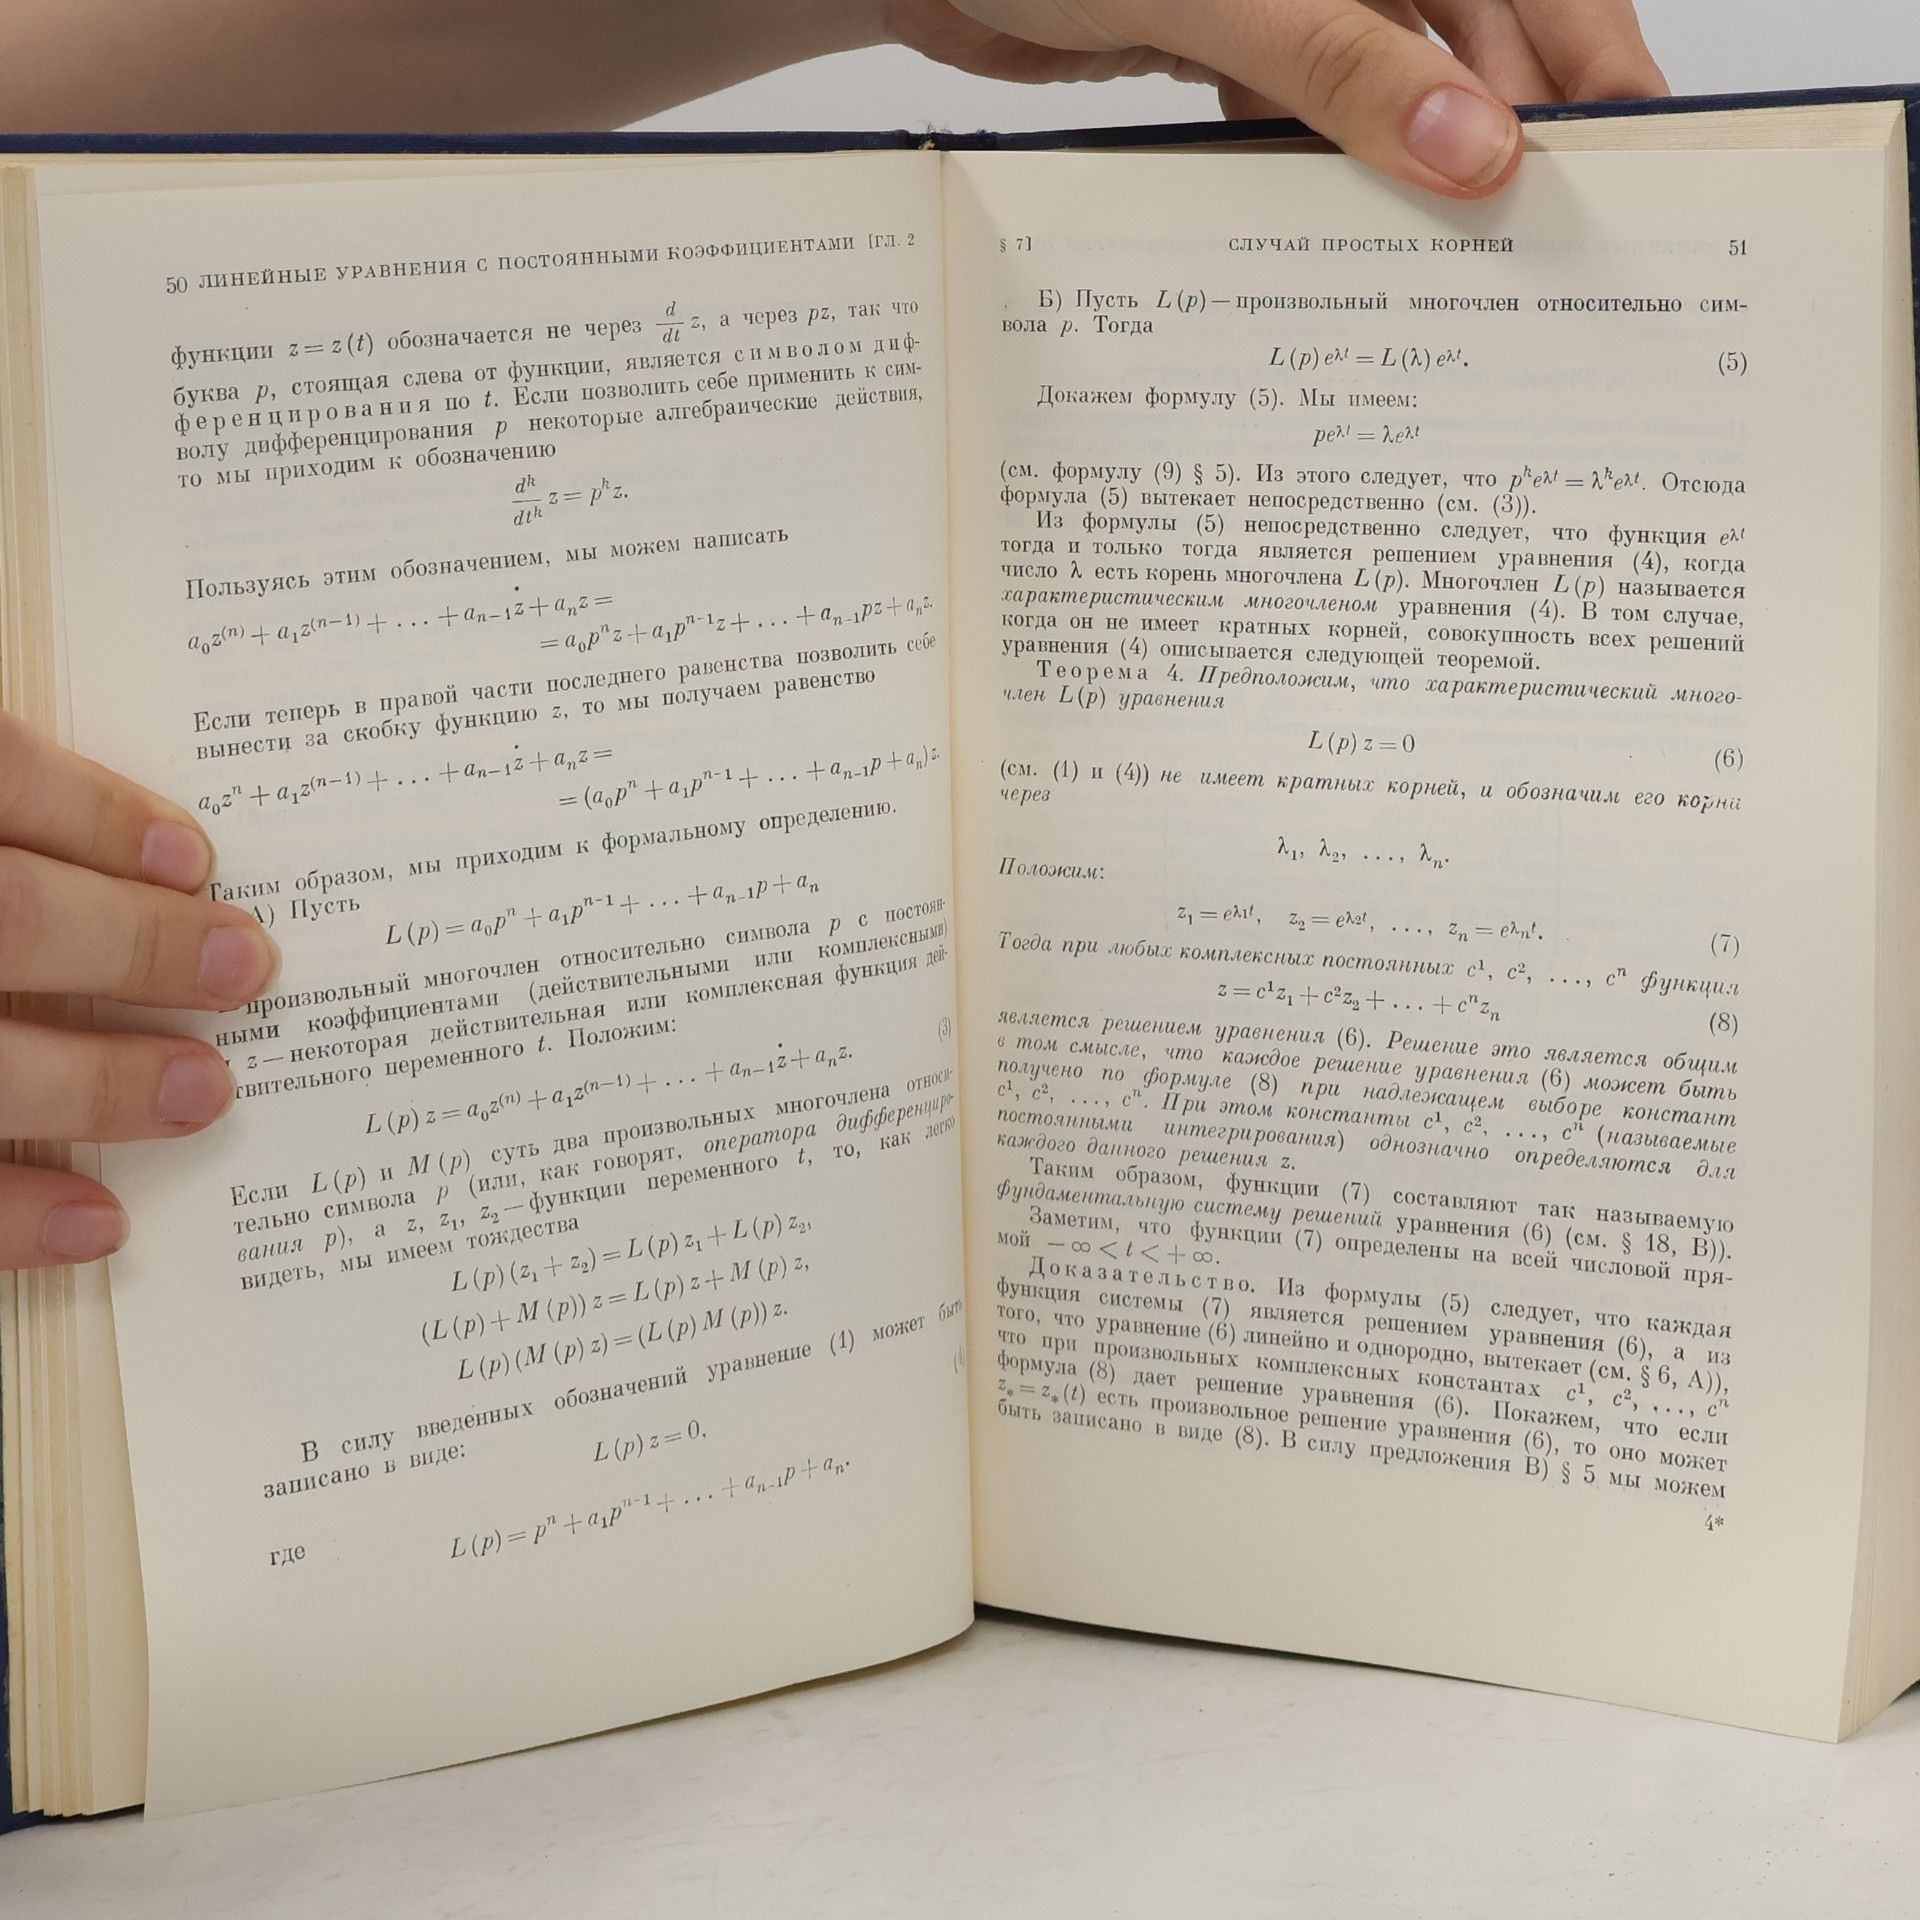 50 ЛИНЕЙНЫЕ УРАВНЕНИЯ С ПОСТОЯННЫМИ КОЭФФИЦИЕНТАМИ [ГЛ. 2
функции z = z (t) обозначается не через d/dt z, а через pz, так что
буква p, стоящая слева от функции, является символом диф-
ференцирования по t. Если позволить себе применить к сим-
волу дифференцирования p некоторые алгебраические действия,
то мы приходим к обозначению
dᵏ/dtᵏ z = pᵏz.
Пользуясь этим обозначением, мы можем написать
a₀z⁽ⁿ⁾ + a₁z⁽ⁿ⁻¹⁾ + . . . + aₙ₋₁ż + aₙz =
= a₀pⁿz + a₁pⁿ⁻¹z + . . . + aₙ₋₁pz + aₙz.
Если теперь в правой части последнего равенства позволить себе
вынести за скобку функцию z, то мы получаем равенство
a₀zⁿ + a₁z⁽ⁿ⁻¹⁾ + . . . + aₙ₋₁ż + aₙz =
= (a₀pⁿ + a₁pⁿ⁻¹ + . . . + aₙ₋₁p + aₙ) z.
Таким образом, мы приходим к формальному определению.
А) Пусть
L (p) = a₀pⁿ + a₁pⁿ⁻¹ + . . . + aₙ₋₁p + aₙ
— произвольный многочлен относительно символа p с постоян-
ными коэффициентами (действительными или комплексными)
z — некоторая действительная или комплексная функция дей-
твительного переменного t. Положим:
L (p) z = a₀z⁽ⁿ⁾ + a₁z⁽ⁿ⁻¹⁾ + . . . + aₙ₋₁ż + aₙz. (3)
Если L (p) и M (p) суть два произвольных многочлена относи-
тельно символа p (или, как говорят, оператора дифференциро-
вания p), а z, z₁, z₂ — функции переменного t, то, как легко
видеть, мы имеем тождества
L (p) (z₁ + z₂) = L (p) z₁ + L (p) z₂,
(L (p) + M (p)) z = L (p) z + M (p) z,
L (p) (M (p) z) = (L (p) M (p)) z.
В силу введенных обозначений уравнение (1) может быть
записано в виде:
L (p) z = 0, (4)
где
L (p) = pⁿ + a₁pⁿ⁻¹ + . . . + aₙ₋₁p + aₙ.
§ 7] СЛУЧАЙ ПРОСТЫХ КОРНЕЙ 51
Б) Пусть L (p) — произвольный многочлен относительно сим-
вола p. Тогда
L (p) e^λt = L (λ) e^λt. (5)
Докажем формулу (5). Мы имеем:
pe^λt = λe^λt
(см. формулу (9) § 5). Из этого следует, что pᵏe^λt = λᵏe^λt. Отсюда
формула (5) вытекает непосредственно (см. (3)).
Из формулы (5) непосредственно следует, что функция e^λt
тогда и только тогда является решением уравнения (4), когда
число λ есть корень многочлена L (p). Многочлен L (p) называется
характеристическим многочленом уравнения (4). В том случае,
когда он не имеет кратных корней, совокупность всех решений
уравнения (4) описывается следующей теоремой.
Теорема 4. Предположим, что характеристический много-
член L (p) уравнения
L (p) z = 0 (6)
(см. (1) и (4)) не имеет кратных корней, и обозначим его корни
через
λ₁, λ₂, . . . , λₙ.
Положим:
z₁ = e^λ₁t, z₂ = e^λ₂t, . . . , zₙ = e^λₙt. (7)
Тогда при любых комплексных постоянных c¹, c², . . . , cⁿ функция
z = c¹z₁ + c²z₂ + . . . + cⁿzₙ (8)
является решением уравнения (6). Решение это является общим
в том смысле, что каждое решение уравнения (6) может быть
получено по формуле (8) при надлежащем выборе констант
c¹, c², . . . , cⁿ. При этом константы c¹, c², . . . , cⁿ (называемые
постоянными интегрирования) однозначно определяются для
каждого данного решения z.
Таким образом, функции (7) составляют так называемую
фундаментальную систему решений уравнения (6) (см. § 18, В)).
Заметим, что функции (7) определены на всей числовой пря-
мой — ∞ < t < + ∞.
Доказательство. Из формулы (5) следует, что каждая
функция системы (7) является решением уравнения (6), а из
того, что уравнение (6) линейно и однородно, вытекает (см. § 6, А)),
что при произвольных комплексных константах c¹, c², . . . , cⁿ
формула (8) дает решение уравнения (6). Покажем, что если
z₊ = z₊ (t) есть произвольное решение уравнения (6), то оно может
быть записано в виде (8). В силу предложения В) § 5 мы можем
4*